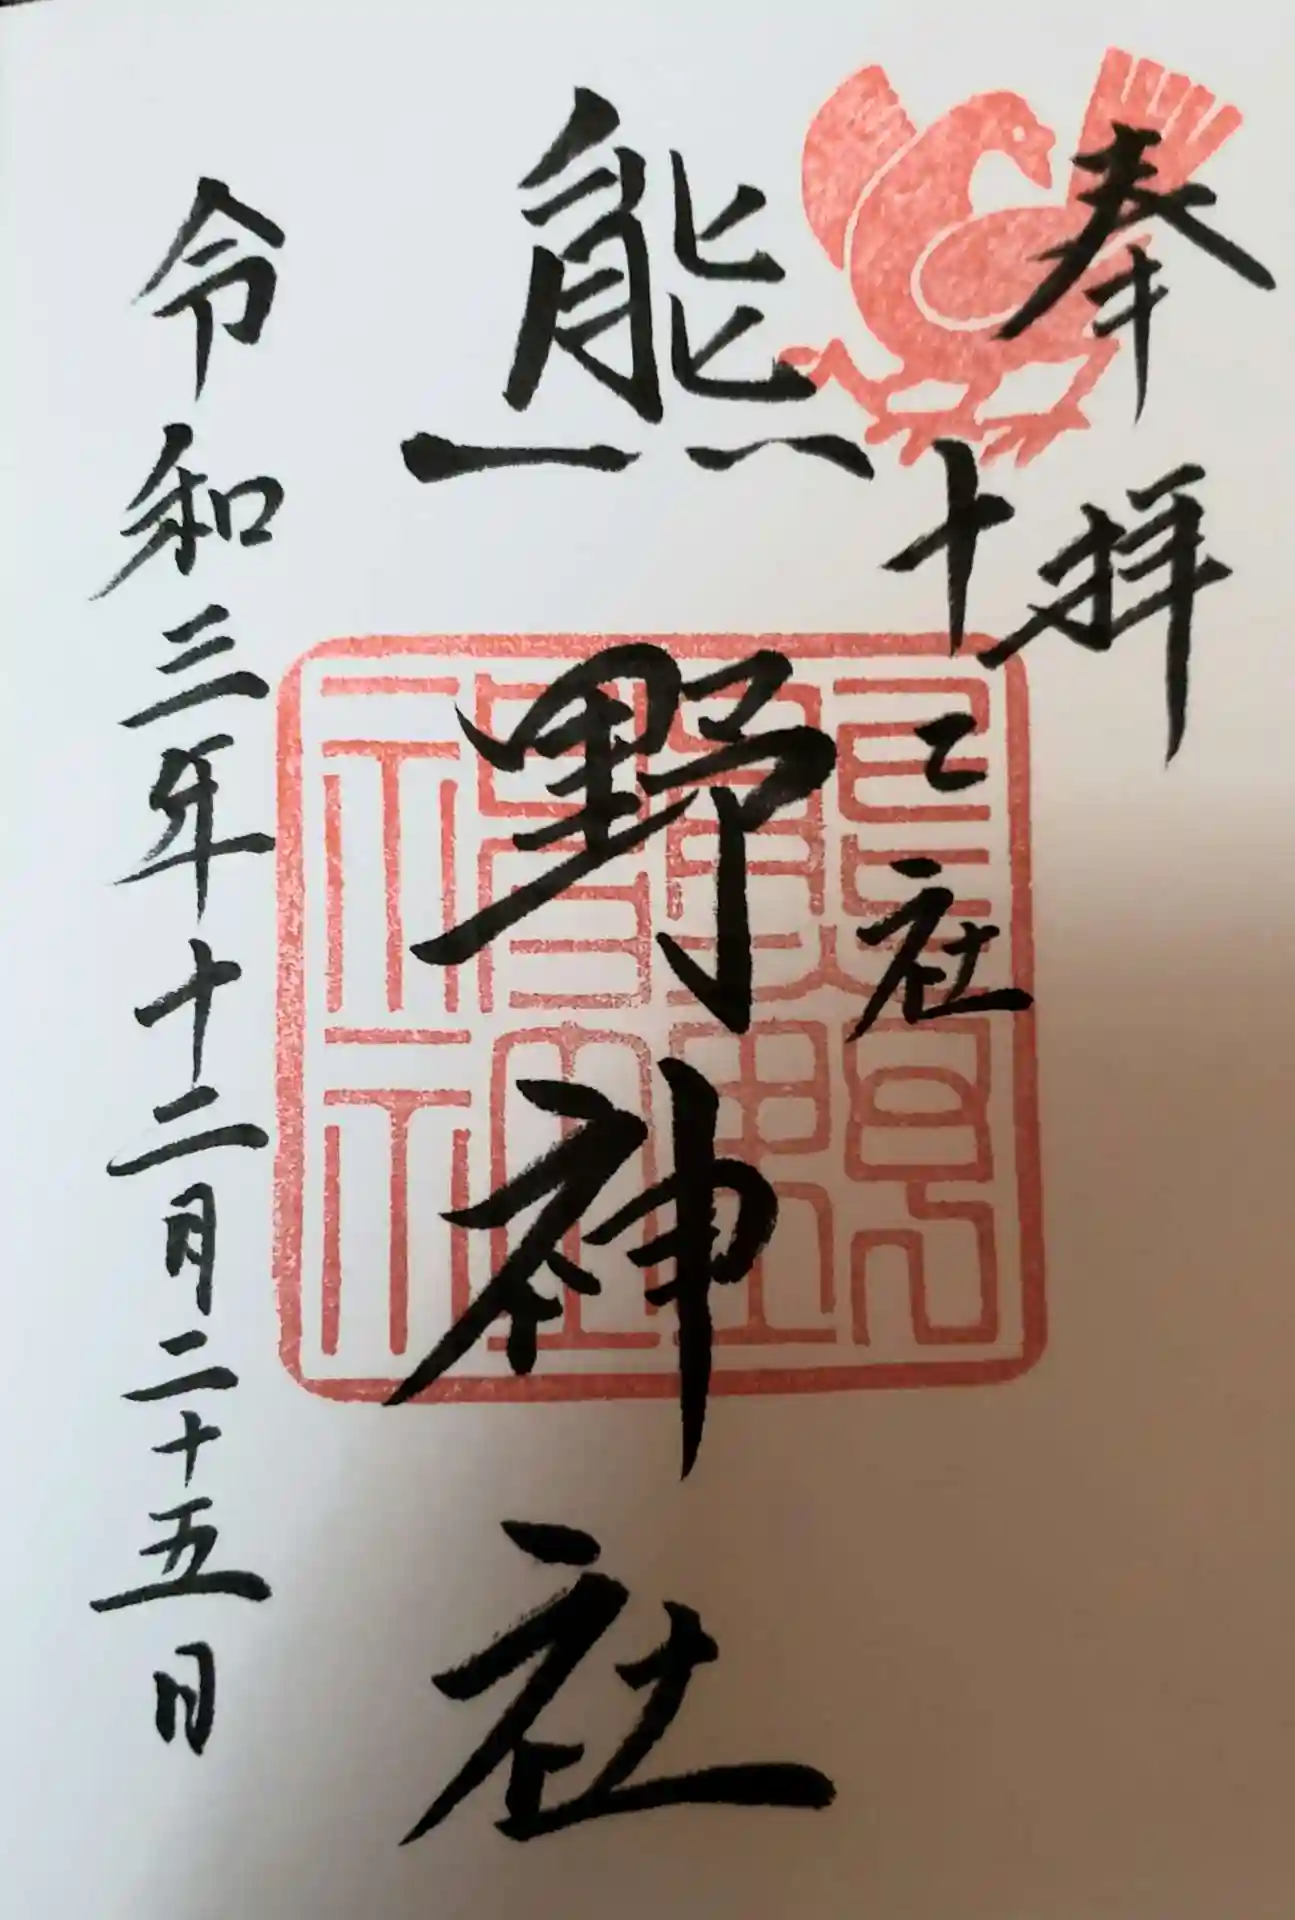 奉拝
十二社
熊野神社
令和三年十二月二十五日